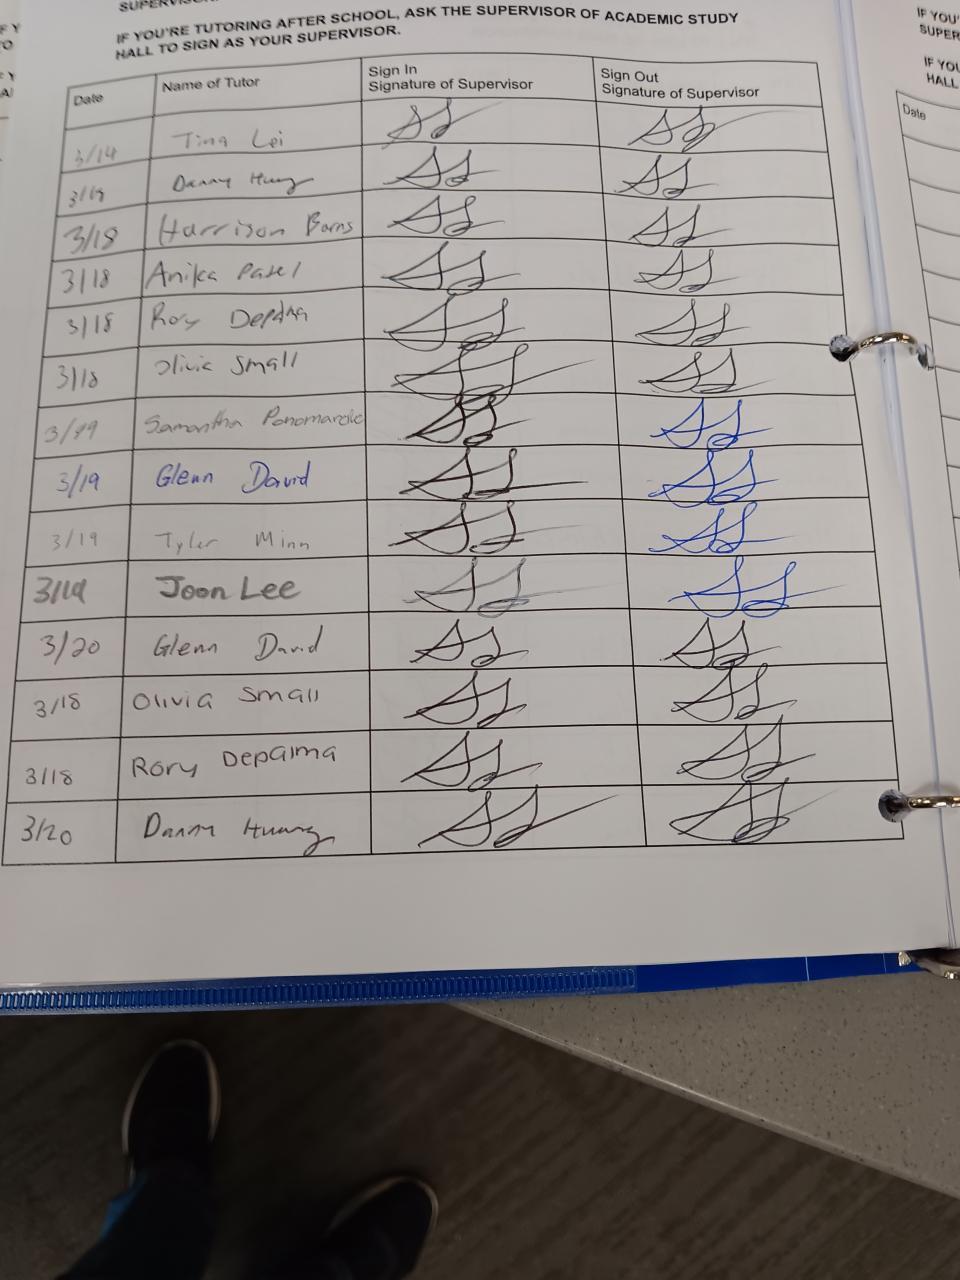 IF YOU'RE TUTORING AFTER SCHOOL, ASK THE SUPERVISOR OF ACADEMIC STUDY
HALL TO SIGN AS YOUR SUPERVISOR.
Date Name of Tutor Sign In Signature of Supervisor Sign Out Signature of Supervisor
3/14 Tina Lei
Danny Huang
3/18 Harrison Barns
3/18 Anika Patel
3/18 Rory Depalma
3/18 Olivia Small
Samantha
3/19 Glenn David
3/19 Tyler Minn
3/19 Joon Lee
3/20 Glenn David
3/18 Olivia Small
3/18 Rory Depalma
3/20 Danny Huang
IF YOU'
SUPER
IF YOU
HALL
Date